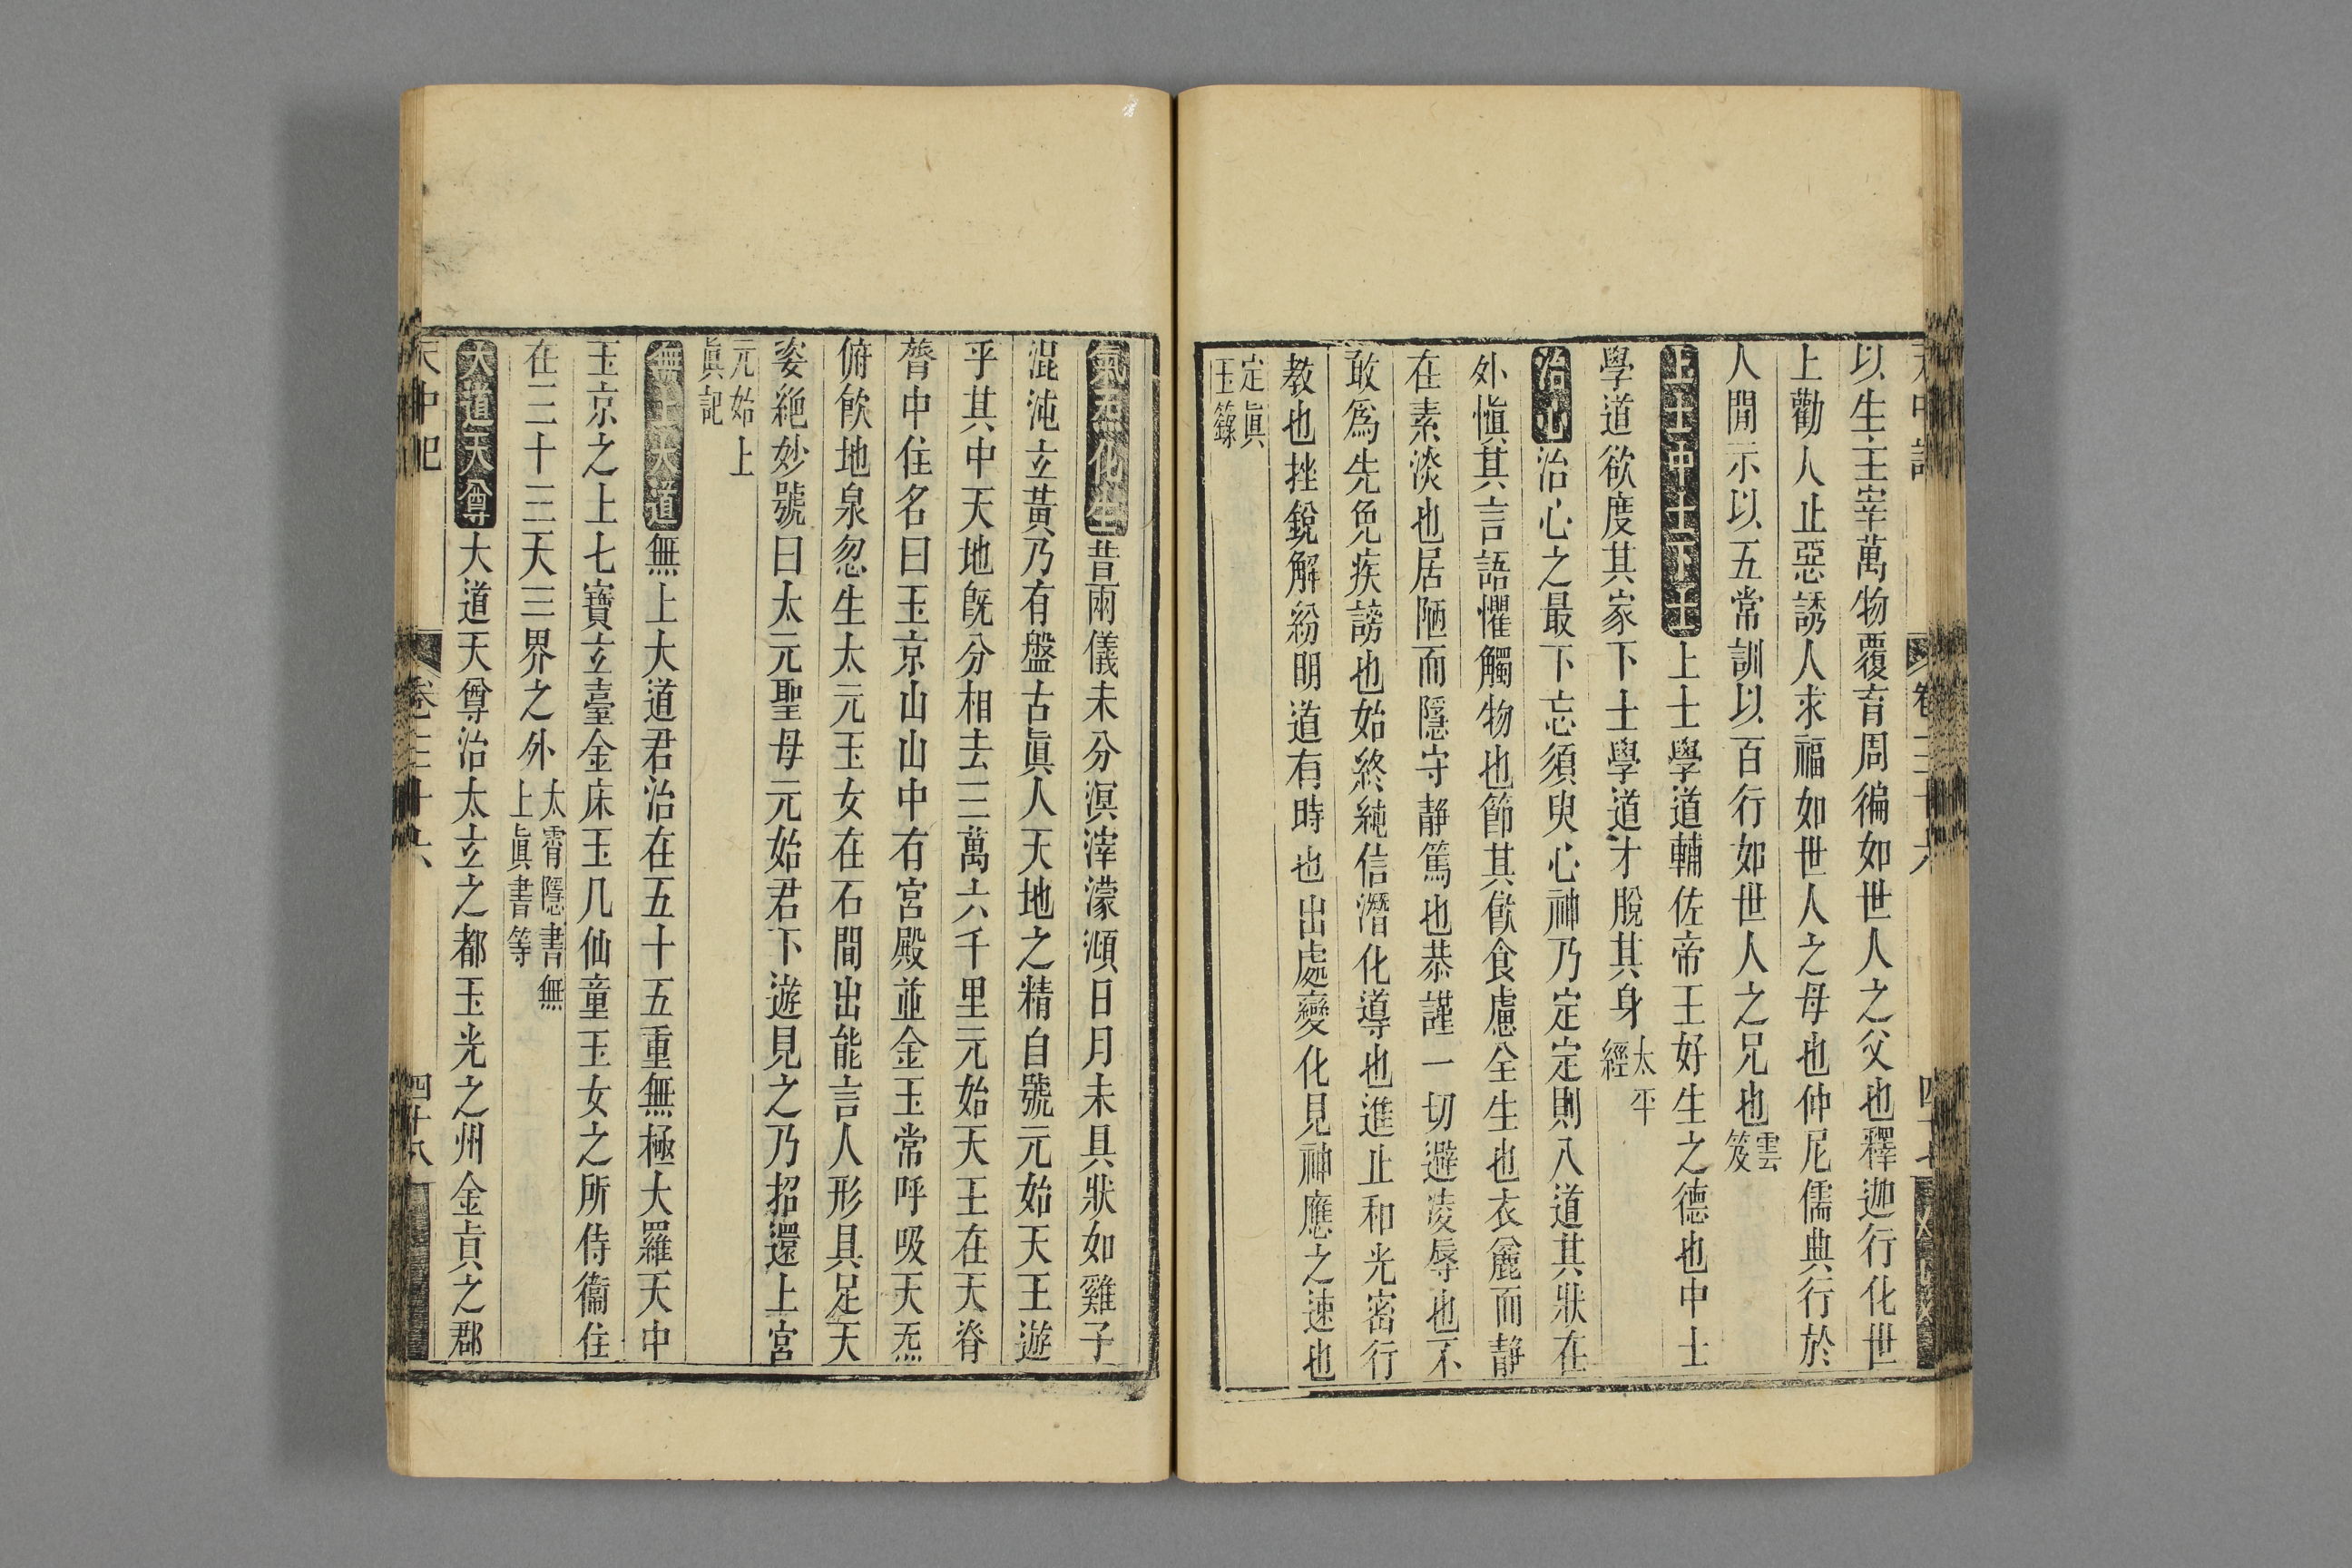 以生主宰萬物覆育周徧如世人之父也釋迦行化世
上勸人止惡誘人求福如世人之母也仲尼儒典行於
人間示以五常訓以百行如世人之兄也雲笈
上士中士下士上士學道輔佐帝王好生之德也中士
學道欲度其家下士學道才脫其身太平經
治心治心之最下忘須臾心神乃定定則入道其狀在
外愼其言語懼觸物也節其飲食慮全生也衣麤而靜
在素淡也居陋而隱守靜篤也恭謹一切避凌辱也不
敢爲先免疾謗也始終純信潛化導也進止和光密行
教也挫銳解紛明道有時也出處變化見神應之速也
定眞玉籙
氣化生昔兩儀未分溟滓濛澒日月未具狀如雞子
混沌玄黃乃有盤古眞人天地之精自號元始天王遊
乎其中天地旣分相去三萬六千里元始天王在天脊
膂中住名曰玉京山山中有宮殿並金玉常呼吸天炁
俯飲地泉忽生太元玉女在石間出能言人形具足天
姿絕妙號曰太元聖母元始君下遊見之乃招還上宮
元始上眞記
無上大道無上大道君治在五十五重無極大羅天中
玉京之上七寶玄臺金床玉几仙童玉女之所侍衞住
在三十三天三界之外太霄隱書無上眞書等
大道天尊大道天尊治太玄之都玉光之州金貞之郡
天中記
卷三十六
四十八